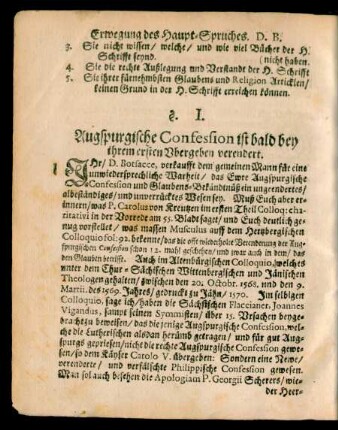 Erwegung des Haupt-Spruches. D. B.
3. Sie nicht wissen/ welche/ und wie viel Bücher der H.
Schrifft seynd. (nicht haben.
4. Sie die rechte Außlegung und Verstandt der H. Schrifft
5. Sie ihrer fürnehmbsten Glaubens und Religion Articklen/
keinen Grund in der H. Schrifft erreichen können.
§. I.
Augspurgische Confession ist bald bey
ihrem ersten Vbergeben verendert.
IHr/ D. Botsacce, verkaufft dem gemeinen Mann für eine
unwiedersprechliche Warheit/ das Ewre Augspurgische
Confession und Glaubens-Bekändtnüß ein ungeendertes/
albeständiges/ und unverrücktes Wesen sey. Muß Euch aber er-
innern/ was P. Carolus von Kreutzen im ersten Theil Colloq: cha-
ritativi in der Vorrede am 55. Bladt saget/ und Euch deutlich ge-
nug vorstellet/ was massen Musculus auff dem Hertzbergischen
Colloquio fol: 92. bekenne/ das die offt wiederholte Verenderung der Aug-
spurgischen Confession schon 12. mahl geschehen/ und zwar auch in dem/ was
den Glauben betrifft. Auch im Altenbürgischen Colloquio, welches
unter dem Chur-Sächsischen Wittenbergischen und Jänischen
Theologen gehalten/ zwischen den 20. Octobr. 1568. und den 9.
Martii. des 1569. Jahres/ gedruckt zu Jähn/ 1570. Im selbigen
Colloquio, sage ich/ haben die Sächsischen Flaccianer, Joannes
Vigandus, sampt seinen Symmisten/ über 15. Vrsachen beyge-
bracht zu beweisen/ das die jenige Augspurgische Confession, wel-
che die Lutherischen alsdan herümb getragen/ und für gut Aug-
spurgs gepriesen/ nicht die rechte Augspurgische Confession gewe-
sen/ so dem Käyser Carolo V. übergeben: Sondern eine Newe/
verenderte/ und verfälschte Philippische Confession gewesen.
Man sol auch besehen die Apologiam P. Georgii Scherers/ wie-
der Heer-